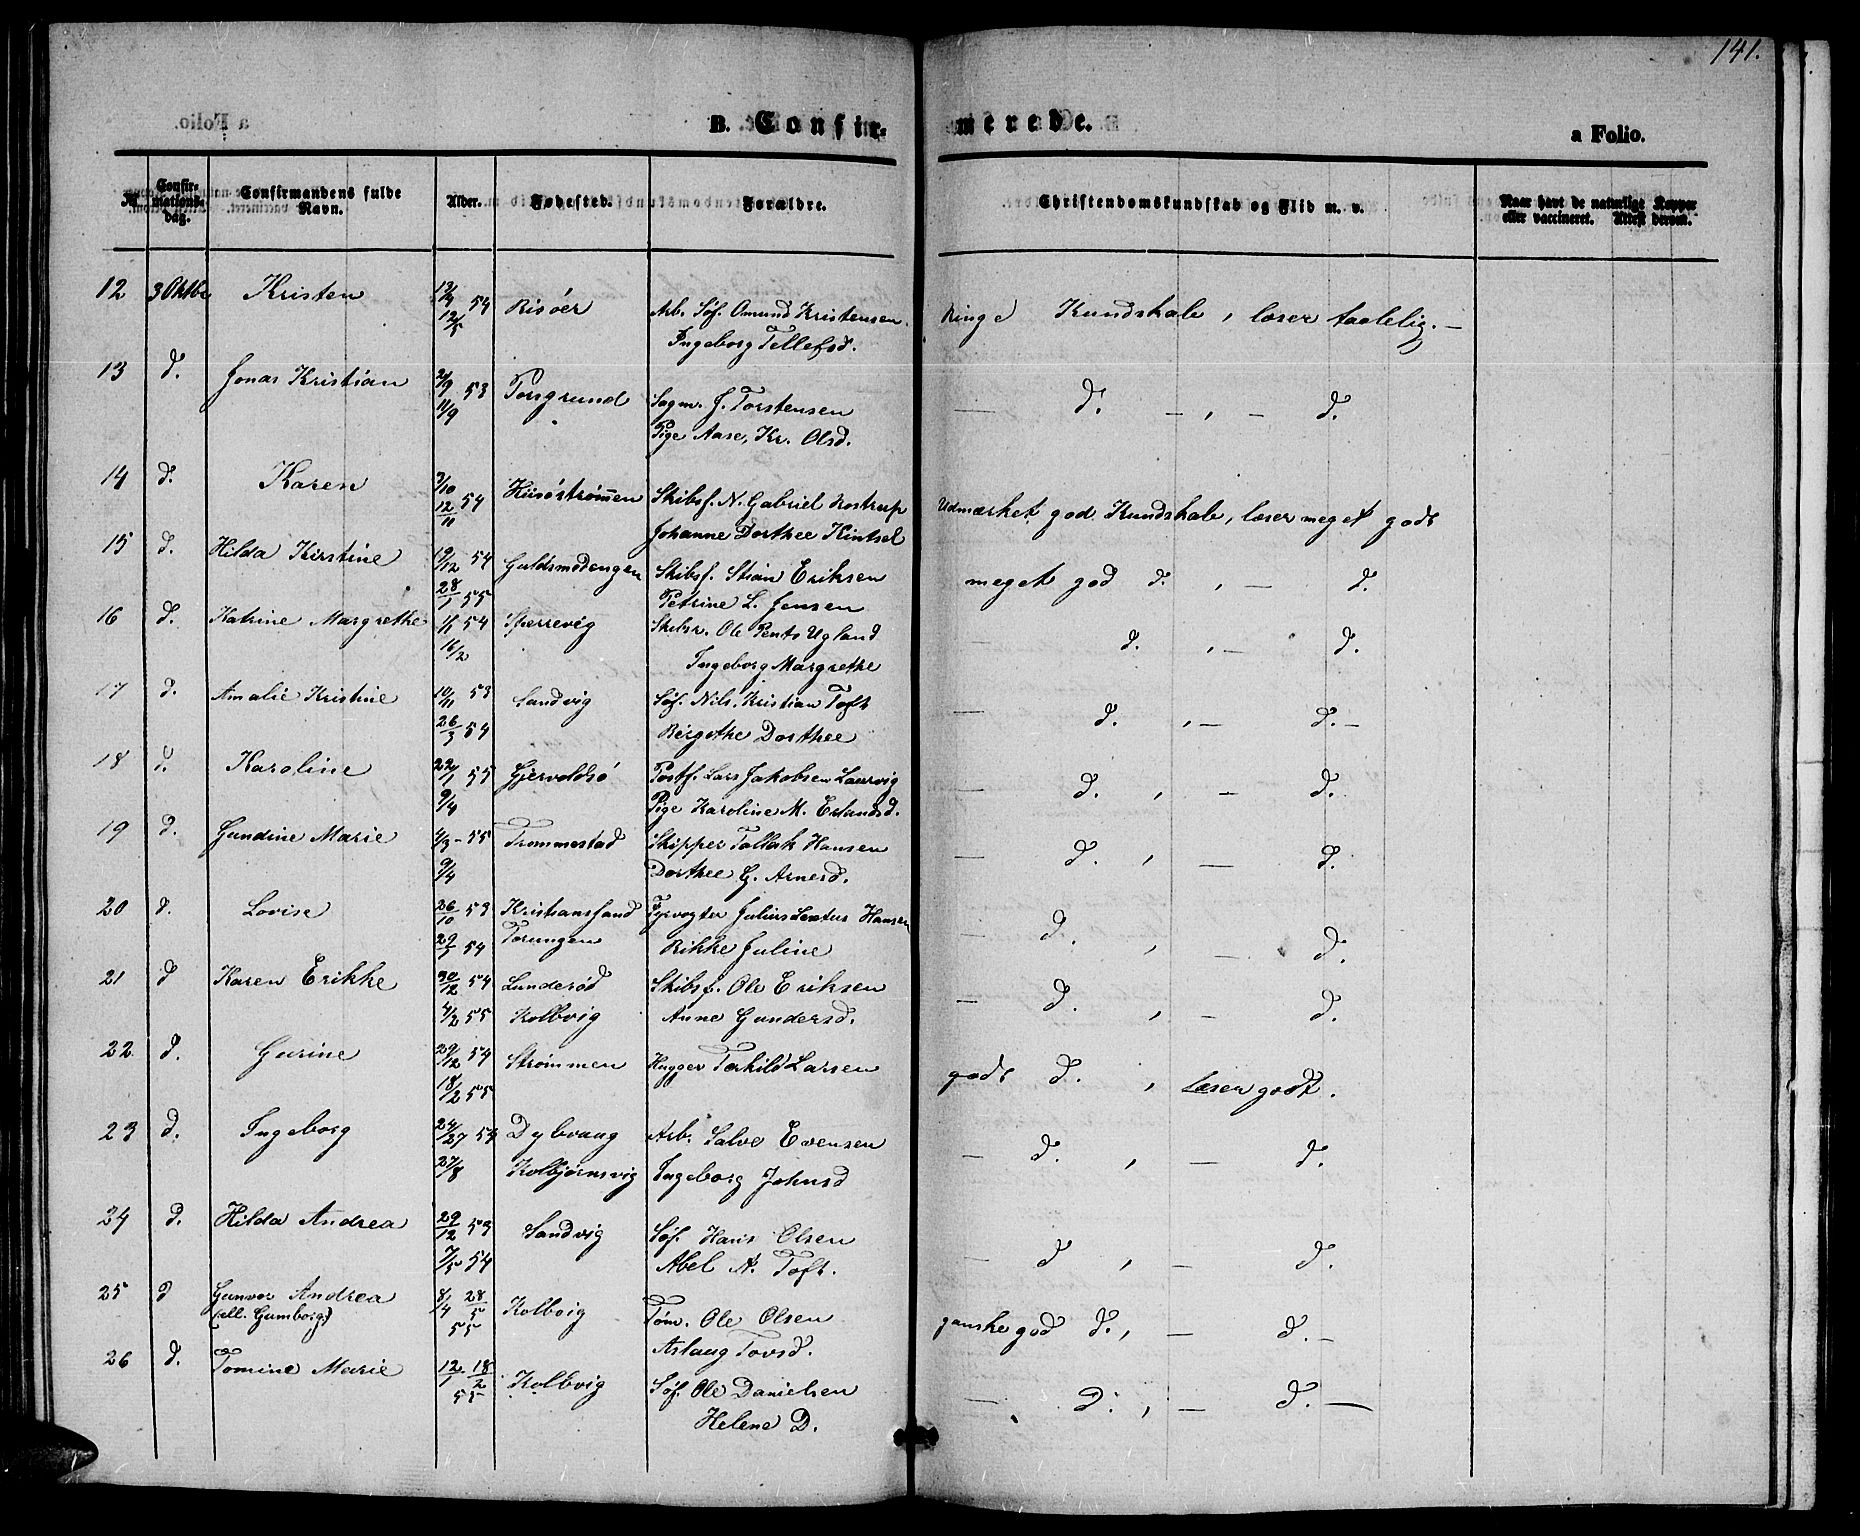 141.
B. Confir-
merede.
a Folio.
№
Confir-
mations-
dag.
Confirmandens fulde
Navn.
Alder.
Fødested.
Forældre.
Christendomskundskab og Flid m. v.
Naar havt de naturlige Kopper
eller vaccineret. Attest derom.
12 3 Oktbr Kristen 54 Risöer Arb. Söf. Omund Kristensen.
12/5 Ingeborg Tellefsd.
Ringe Kundskab, læser taalelig. —
13 d. Jonas Kristian 2/9 53 Porsgrund Sagm. J. Torstensen
11/9 Pige Aase, Kr. Olsd.
— d. — , — d.
14 d. Karen 3/10 54 Hiisöströmmen Skibsf. N. Gabriel Rostrup
12/11 Johanne Dorthee Kintsel
Udmærket god Kundskab, læser meget godt
15 d. Hilda Kirstine 19/12 54 Guldsmedengen Skibsf. Stian Eriksen
28/1 55 Petrine L. Jensen
meget god d. , — d.
16 d. Katrine Margrethe 1/1 54 Sperrevig Skibsr. Ole Pents Ugland
16/2 Ingeborg Margrethe
— d. , — d.
17 d. Amalie Kristine 10/11 53 Sandvig Söf. Nils Kristian Toft
26/3 54 Birgethe Dorthee
— d. , — d. —
18 d. Karoline 22/1 55 Gjervoldsö Postf. Lars Jakobsen Laurvig
9/4 Pige Karoline M. Erlandsd.
— d. , — d.
19 d. Gundine Marie 4/3 - 55 Trommestad Skipper Tallak Hansen
9/4 Dorthee G. Arnesd.
— d. , — d.
20 d. Lovise 26/10 53 Kristianssand Fyrvogter Julius Sextus Hansen
54 Torungen Rikke Juline
— d. , — d.
21 d Karen Erikke 30/12 54 Lunderöd Skibsf. Ole Eriksen
4/2 55 Kolbvig Anne Gundersd.
— d. , — d.
22 d. Gurine 29/12 54 Strømmen Hugger Terkild Larsen
18/2 55
godt d. , læser godt.
23 d. Ingeborg 54 Dybvaag Arb. Salve Evensen
27/8 Kolbjørnsvig Ingeborg Johnsd
— d. , — d.
24 d. Hilda Andrea 29/12 53 Sandvig Söf. Hans Olsen
7/5 54 Abel N. Toft.
— d , — d.
25 d Gunvor Andrea 8/4 28/5 Kolbvig Tøm. Ole Olsen
(ell. Gumborg) 55 Aslaug Tovsd.
ganske god d. , — d. —
26 d. Tomine Marie 12/1 - 18/2 Kolbvig Söf. Ole Danielsen
55 Helene D.
— d. , — d. —